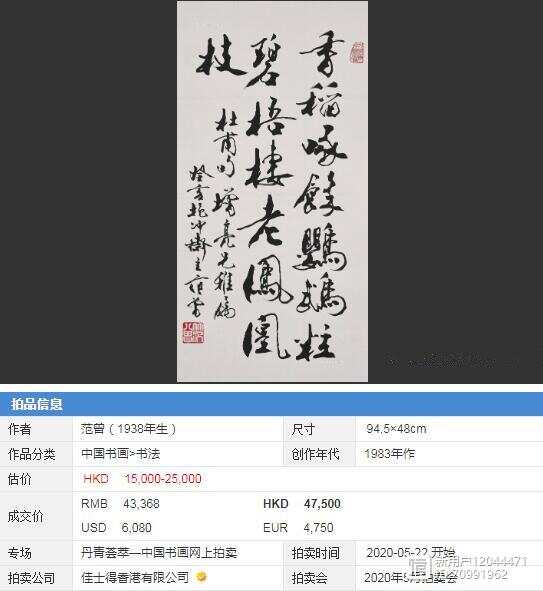 香稻啄餘鸚鵡粒
碧梧棲老鳳凰
枝
杜甫句 增亮兄雅屬
癸亥抱冲齋主范曾
拍品信息
作者 范曾（1938年生） 尺寸 94.5×48cm
作品分类 中国书画>书法 创作年代 1983年作
估价 HKD 15,000-25,000
成交价 RMB 43,368 HKD 47,500
USD 6,080 EUR 4,750
专场 丹青荟萃—中国书画网上拍卖 拍卖时间 2020-05-22 开始
拍卖公司 佳士得香港有限公司 拍卖会 2020年5月拍卖会
新用户12044471